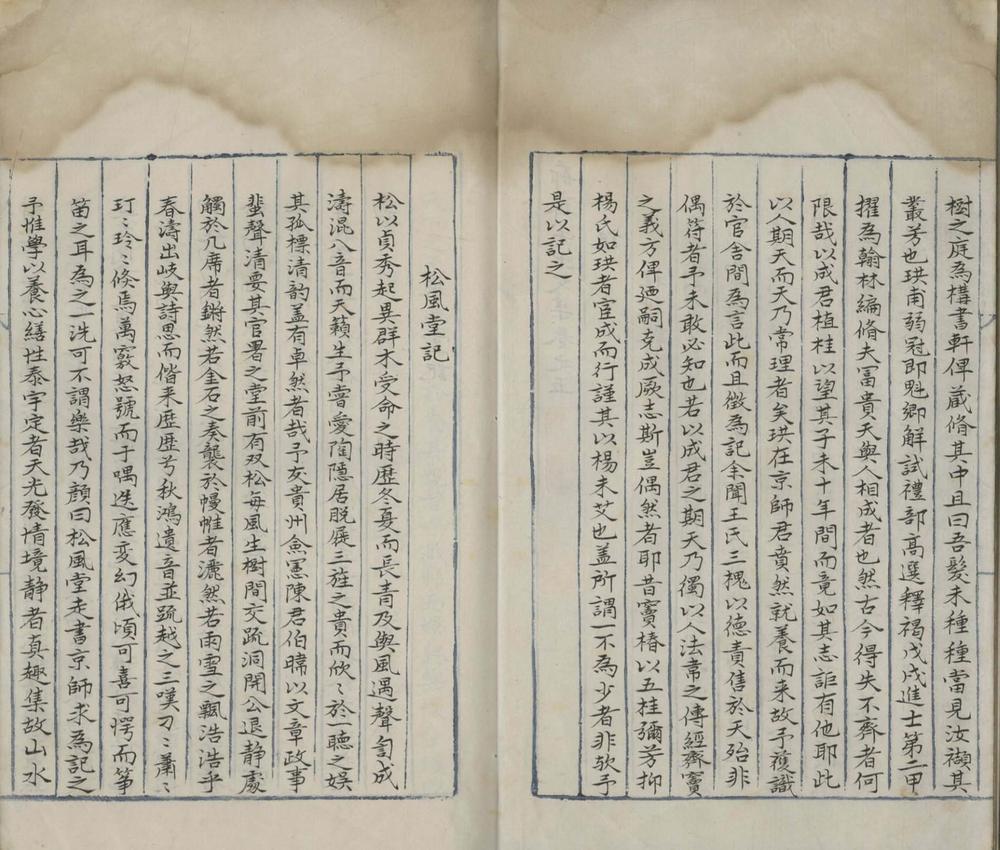 樹之庭為構書軒俾藏脩其中且曰吾髮未種種當見汝擷其
叢芳也珙甫弱冠即魁鄉解試禮部高選釋褐戊戌進士第二甲
擢為翰林編脩夫冨貴天與人相成者也然古今得失不齊者何
限哉以成君植桂以望其子未十年間而竟如其志詎有他耶此
以人期天而天乃常理者矣珙在京師君賁然就養而来故予獲識
於官舍間為言此而且徴為記余聞王氏三槐以德責售於天殆非
偶符者予未敢必知也若以成君之期天乃獨以人法常之傳經齊竇
之義方俾廼嗣克成厥志斯豈偶然者耶昔竇椿以五桂彌芳抑
楊氏如珙者宦成而行謹其以楊未艾也盖所謂一不為少者非欤予
是以記之
松風堂記
松以貞秀起異群木受命之時歴冬夏而長青及與風遇聲匉成
濤混八音而天籟生予甞愛陶隱居脱屣三旌之貴而欣〻於一聽之娛
其孤標清韵盖有卓然者哉予友貴州僉憲陳君伯暐以文章政事
蜚聲清要其官署之堂前有双松每風生樹間交疏洞開公退静處
觸於几席者鏘然若金石之奏襲於幔帷者灑然若雨雪之飄浩浩乎
春濤出岐與詩思而偕来歴歴兮秋鴻遺音並䟽越之三嘆刁〻蕭〻
玎〻玲〻倏焉萬竅怒號而于喁迭應変幻俄頃可喜可愕而箏
笛之耳為之一洗可不謂樂哉乃顔曰松風堂走書京師求為記之
予惟學以養心繕性泰宇定者天光發情境静者真趣集故山水